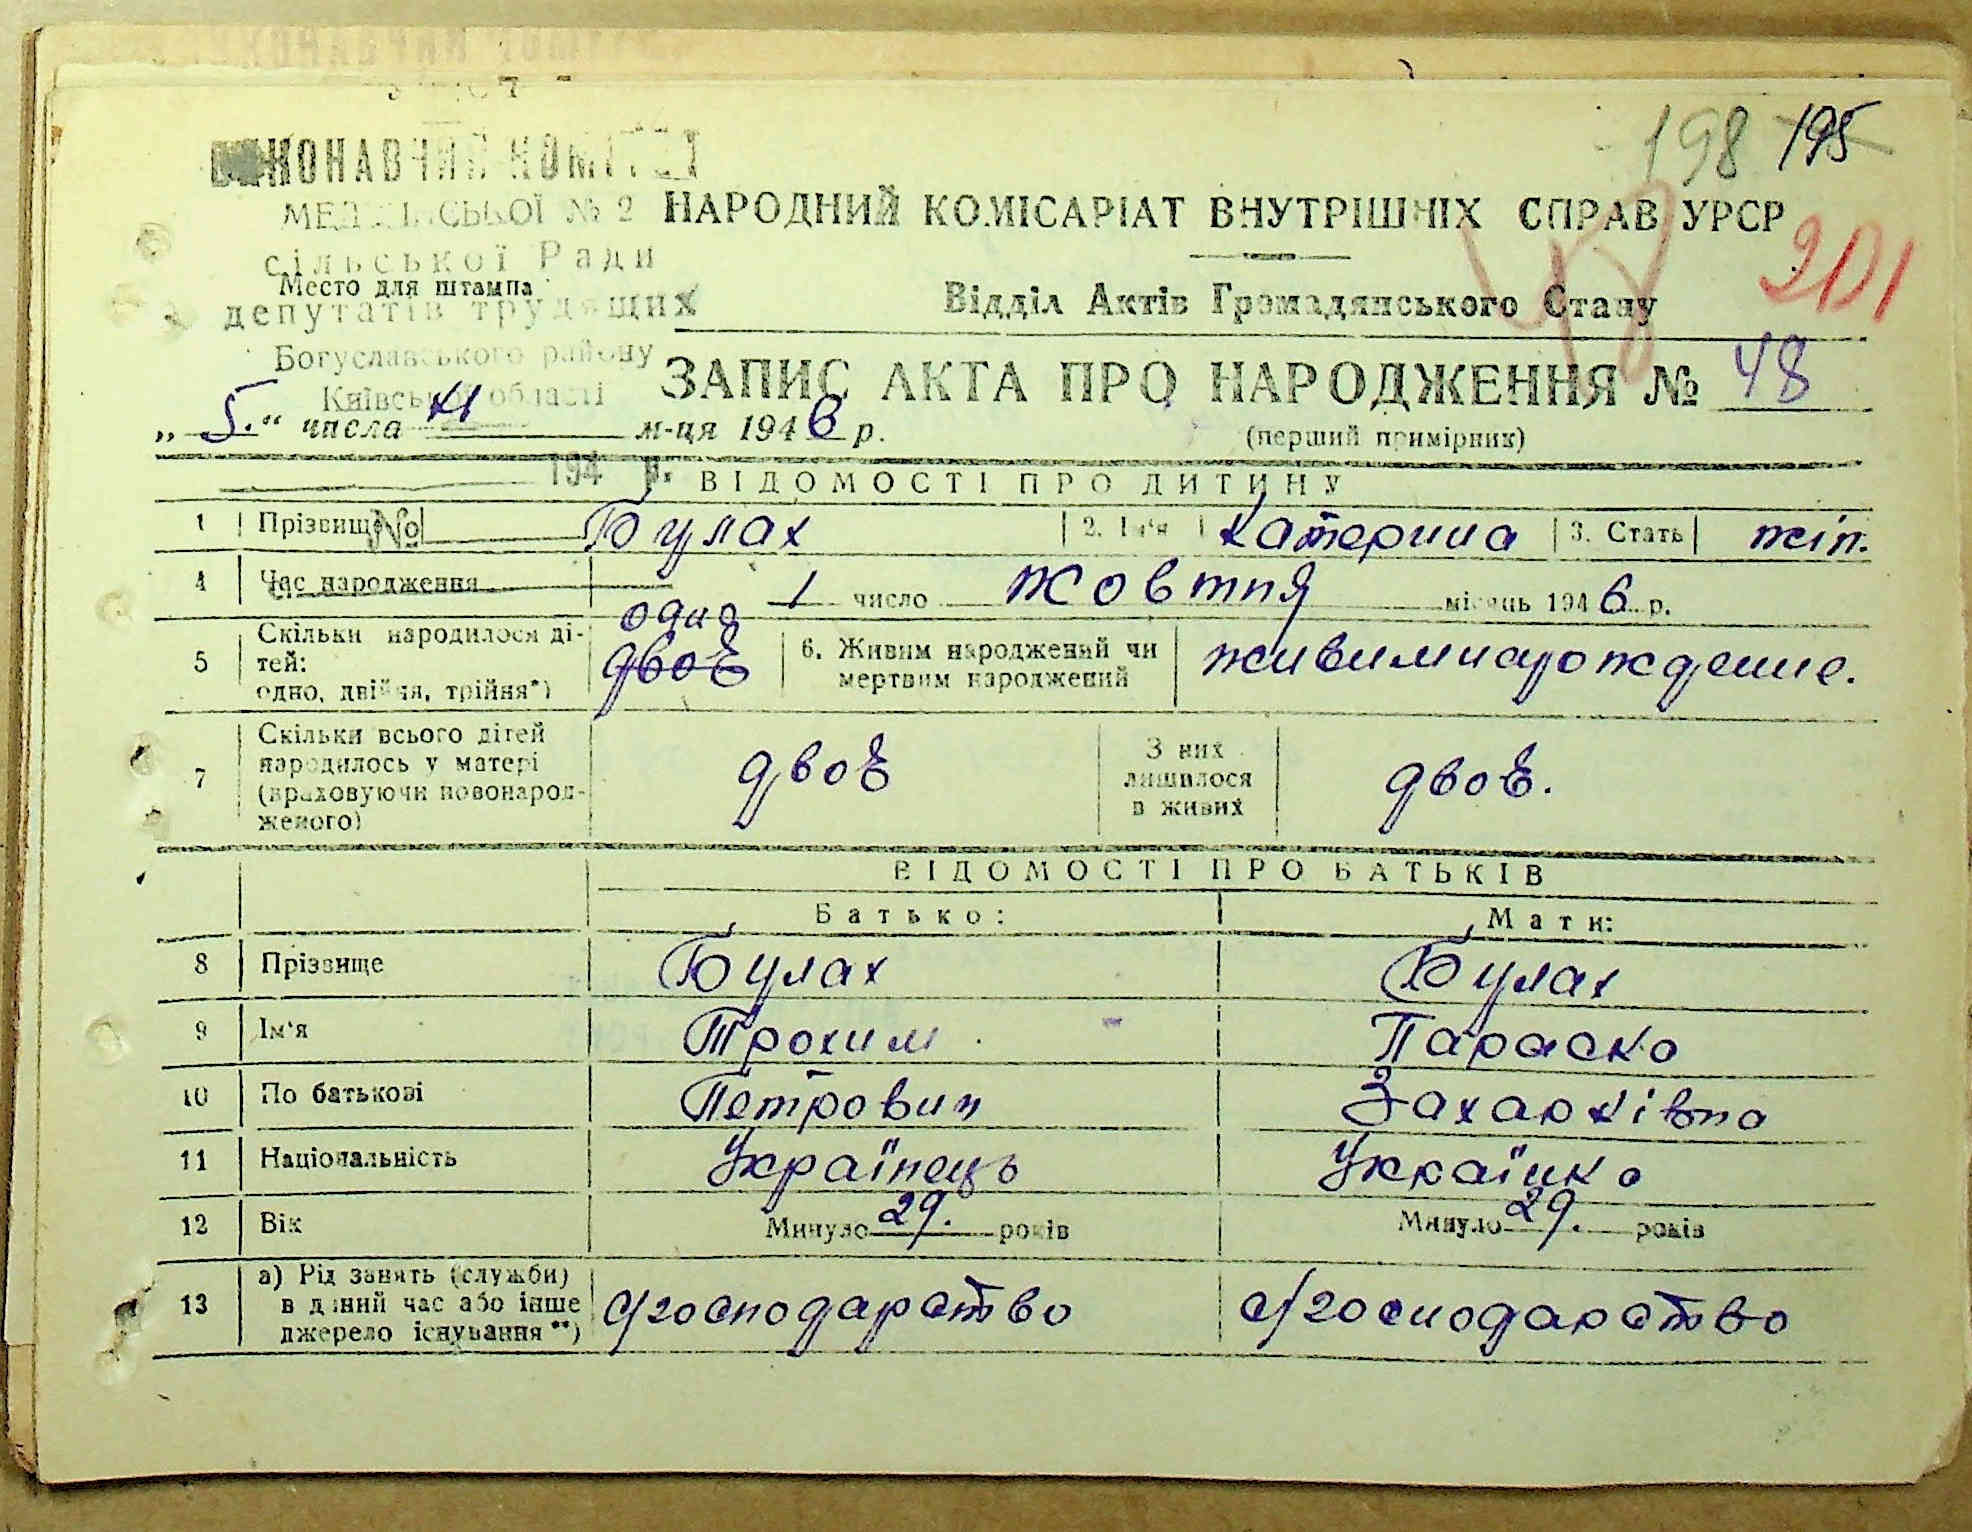 198 195
ВИКОНАВЧИЙ КОМІТЕТ
МЕДВИНСЬКОЇ № 2 НАРОДНИЙ КОМІСАРІАТ ВНУТРІШНІХ СПРАВ УРСР
сільської Ради
201
Место для штампа
депутатів трудящих
Відділ Актів Громадянського Стану
48
Богуславського району
Київської області
ЗАПИС АКТА ПРО НАРОДЖЕННЯ № 48
„ 5. “ числа XI м-ця 1946 р.
(перший примірник)
194 р.
ВІДОМОСТІ ПРО ДИТИНУ
1 Прізвище № Булах 2. Ім‘я Катерина 3. Стать жін.
4 Час народження 1 число жовтня місяць 1946 р.
5 Скільки народилося ді-
тей:
одно, двійня, трійня*)
одна
двоє
6. Живим народжений чи
мертвим народжений
живимнарождение.
7 Скільки всього дітей
народилось у матері
(враховуючи новонарод-
женого)
двоє
З них
лишилося
в живих
двоє.
ВІДОМОСТІ ПРО БАТЬКІВ
Батько: Мати:
8 Прізвище Булах Булах
9 Ім‘я Трохим Параска
10 По батькові Петрович Захарківна
11 Національність Українець Українка
12 Вік Минуло 29. років Минуло 29. років
13 а) Рід занять (служби)
в даний час або інше
джерело існування**)
с/господарство с/господарство